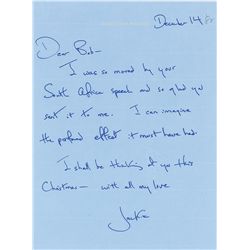 December 14
Dear Bob—
I was so moved by your
South Africa speech and so glad you
sent it to me. I can imagine
the profound effect it must have had.
I shall be thinking of you this
Christmas— with all my love
Jackie